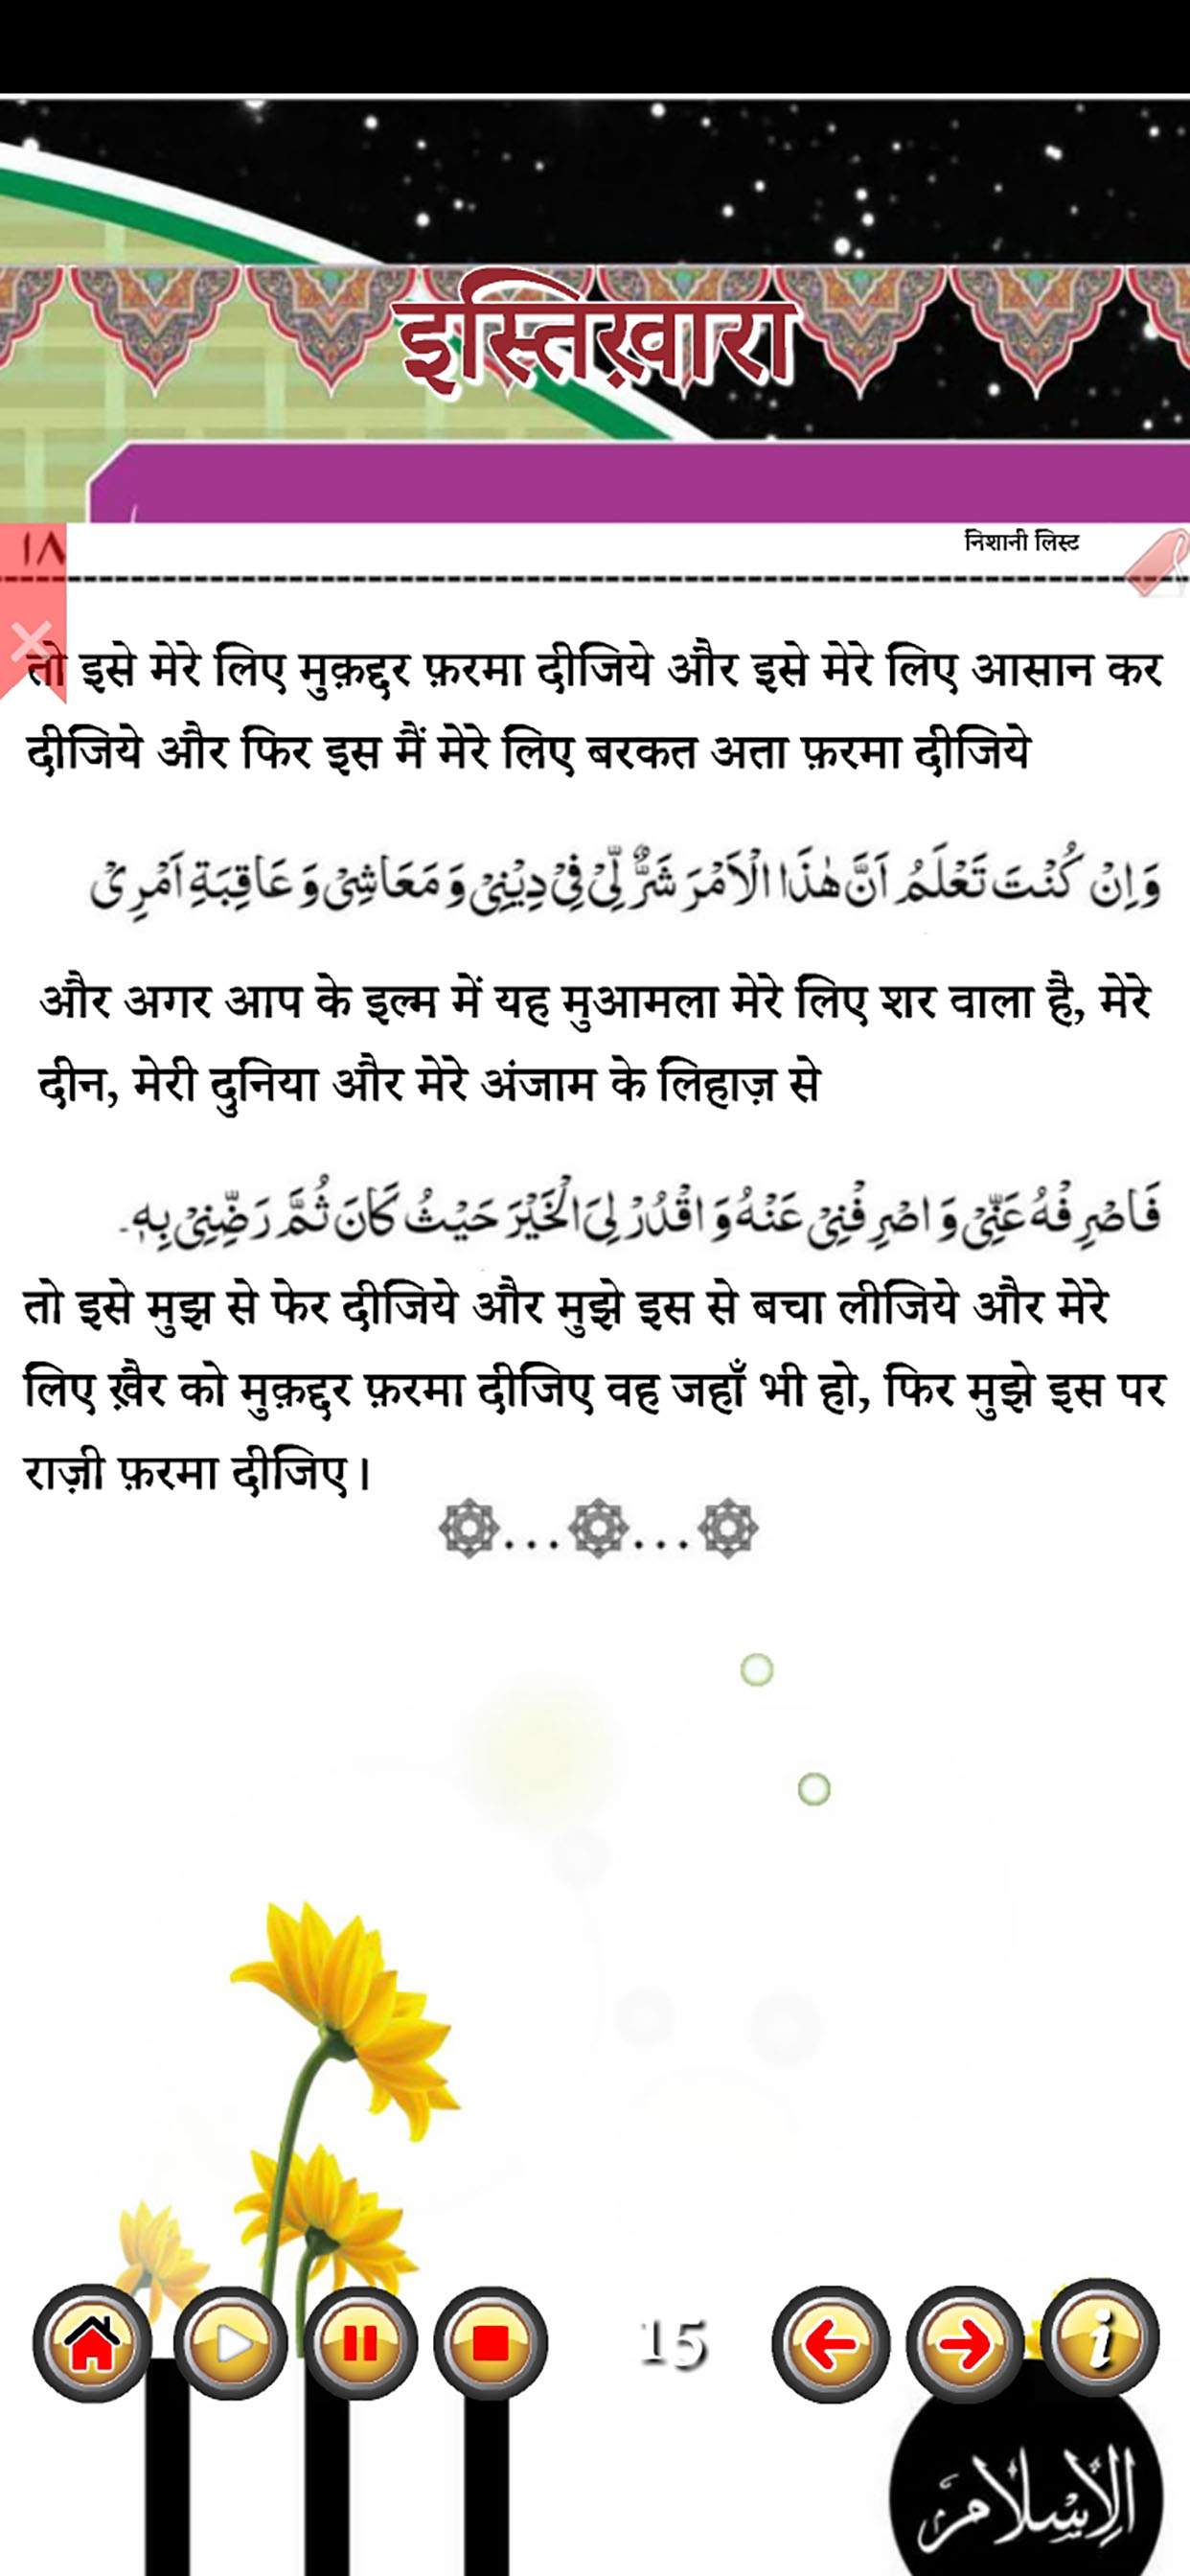 इस्तिख़ारा
١٨
निशानी लिस्ट
तो इसे मेरे लिए मुक़द्दर फ़रमा दीजिये और इसे मेरे लिए आसान कर
दीजिये और फिर इस मैं मेरे लिए बरकत अता फ़रमा दीजिये
وَاِنْ كُنْتَ تَعْلَمُ اَنَّ هٰذَا الْاَمْرَ شَرٌّ لِّیْ فِیْ دِیْنِیْ وَ مَعَاشِیْ وَ عَاقِبَةِ اَمْرِیْ
और अगर आप के इल्म में यह मुआमला मेरे लिए शर वाला है, मेरे
दीन, मेरी दुनिया और मेरे अंजाम के लिहाज़ से
فَاصْرِفْهُ عَنِّیْ وَ اصْرِفْنِیْ عَنْهُ وَ اقْدُرْ لِیَ الْخَیْرَ حَیْثُ كَانَ ثُمَّ رَضِّنِیْ بِهٖ۔
तो इसे मुझ से फेर दीजिये और मुझे इस से बचा लीजिये और मेरे
लिए ख़ैर को मुक़द्दर फ़रमा दीजिए वह जहाँ भी हो, फिर मुझे इस पर
राज़ी फ़रमा दीजिए।
15
الاِسْلَام